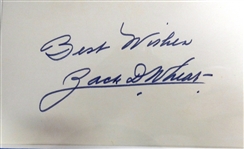 Best Wishes
Zack D Wheat